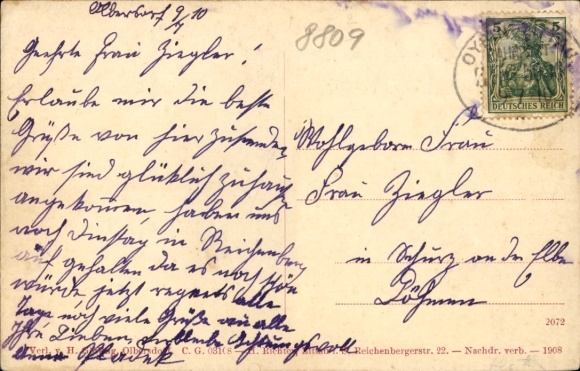 Olbersdorf 9/10
8809
Geehrte Frau Ziegler!
Erlaube mir die beste
Grüße von hier zusenden,
wir sind glücklich zuhaus
angekommen, haben uns
noch Dinstag in Reichenberg
auf gehalten da es noch schön
würde, jetzt regnets alle
Tage noch viele Grüße an alle
Ihre Lieben, verbleibe Achtungsvoll
5 5
DEUTSCHES REICH
Wohlgeborn Frau
Frau Ziegler
in Schurz an der Elbe
Böhmen
2072
Verl. v. H. Olbersdorf. C. G. 03168 — H. Richter, Zittau i. S. Reichenbergerstr. 22. — Nachdr. verb. — 1908